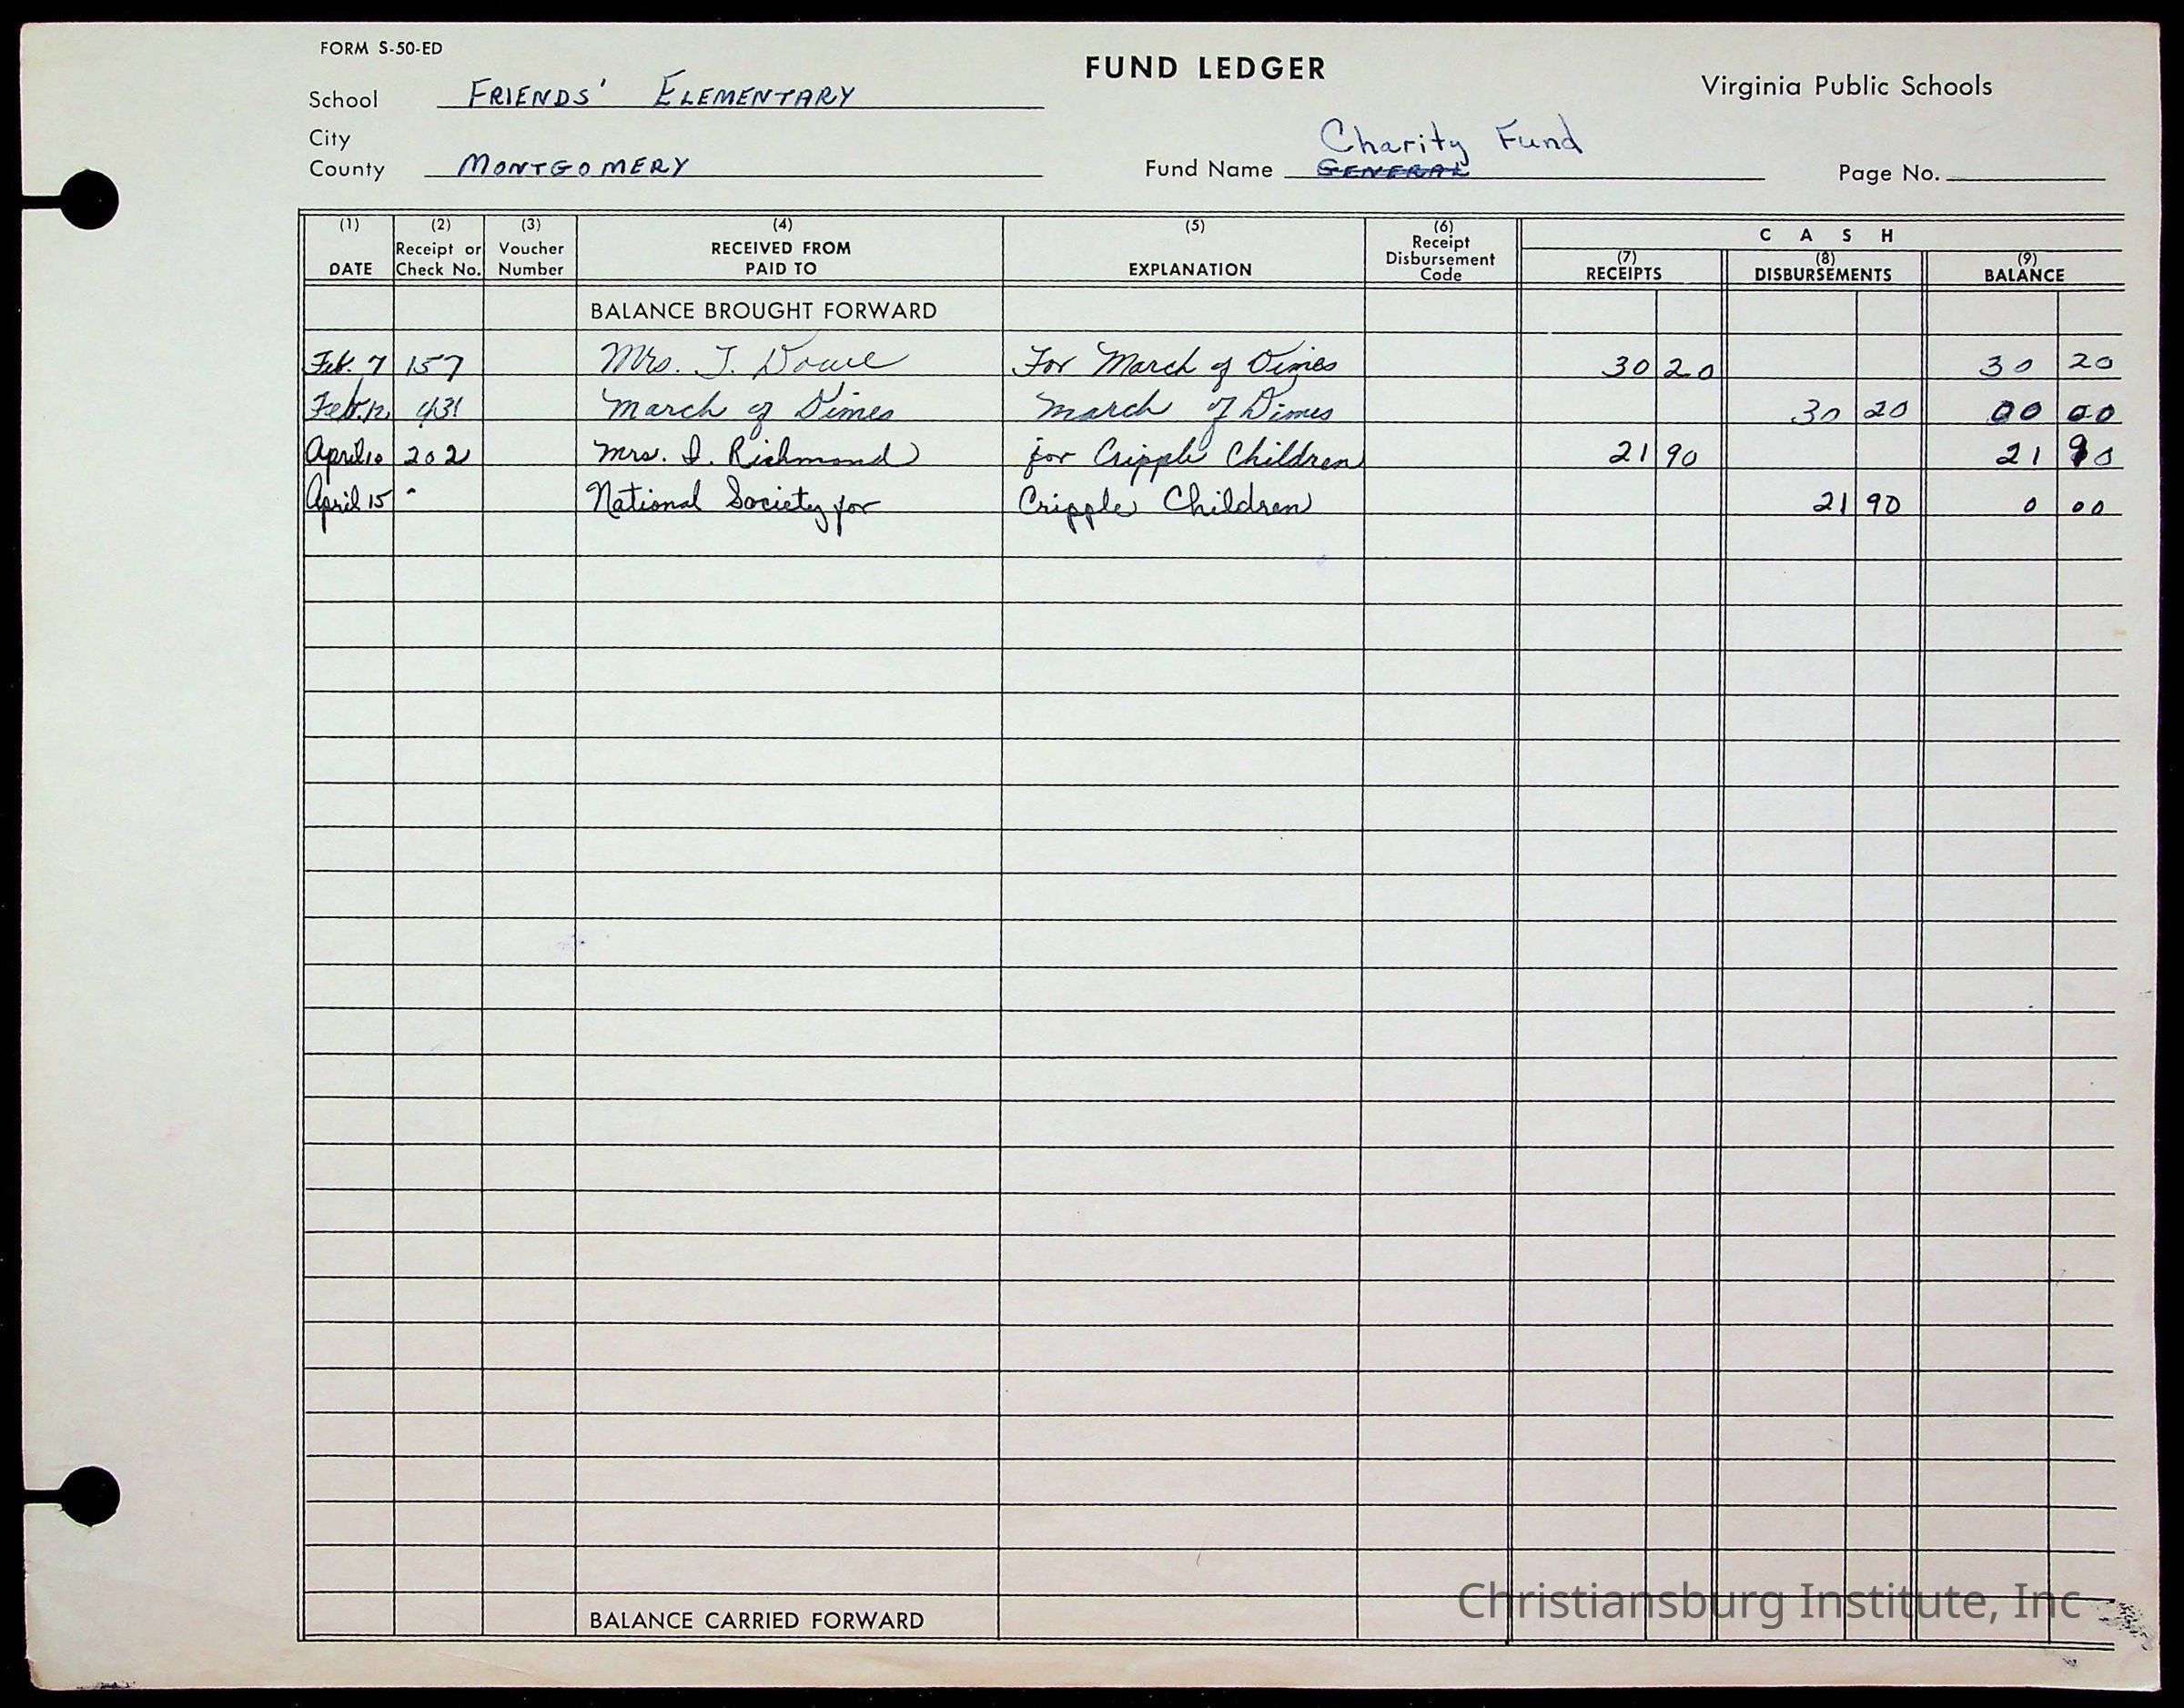 FORM S-50-ED
FUND LEDGER
Virginia Public Schools
School FRIENDS' ELEMENTARY
City
County MONTGOMERY
Charity Fund
Fund Name GENERAL
Page No.
(1) DATE
(2) Receipt or Check No.
(3) Voucher Number
(4) RECEIVED FROM PAID TO
(5) EXPLANATION
(6) Receipt Disbursement Code
CASH
(7) RECEIPTS
(8) DISBURSEMENTS
(9) BALANCE
BALANCE BROUGHT FORWARD
Feb. 7 157 Mrs. J. For March of Dimes 30 20 30 20
Feb. 12 431 March of Dimes March of Dimes 30 20 00 00
April 10 202 Mrs. I. Richmond for Cripple Children 21 90 21 90
April 15 National Society for Cripple Children 21 90 0 00
BALANCE CARRIED FORWARD
Christiansburg Institute, Inc